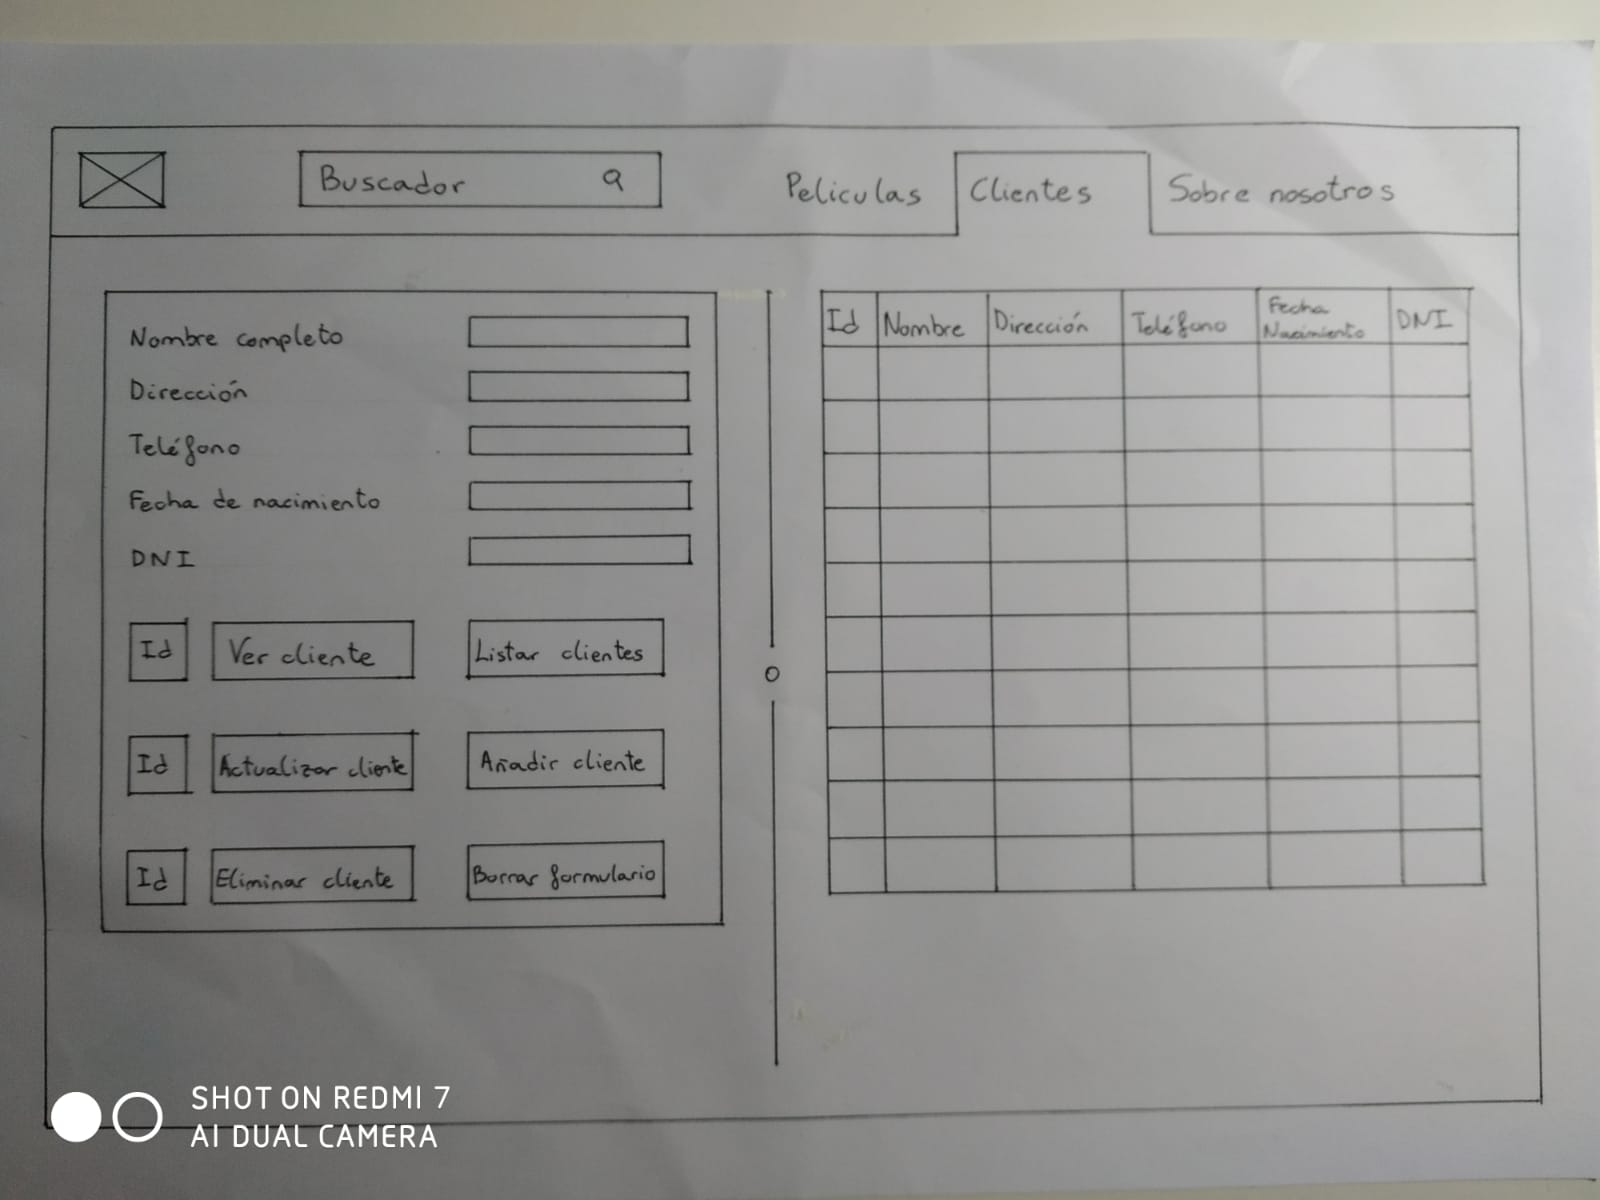 Buscador
Peliculas
Clientes
Sobre nosotros
Nombre completo
Dirección
Teléfono
Fecha de nacimiento
DNI
Id
Ver cliente
Listar clientes
Id
Actualizar cliente
Añadir cliente
Id
Eliminar cliente
Borrar formulario
Id
Nombre
Dirección
Teléfono
Fecha
Nacimiento
DNI
SHOT ON REDMI 7
AI DUAL CAMERA